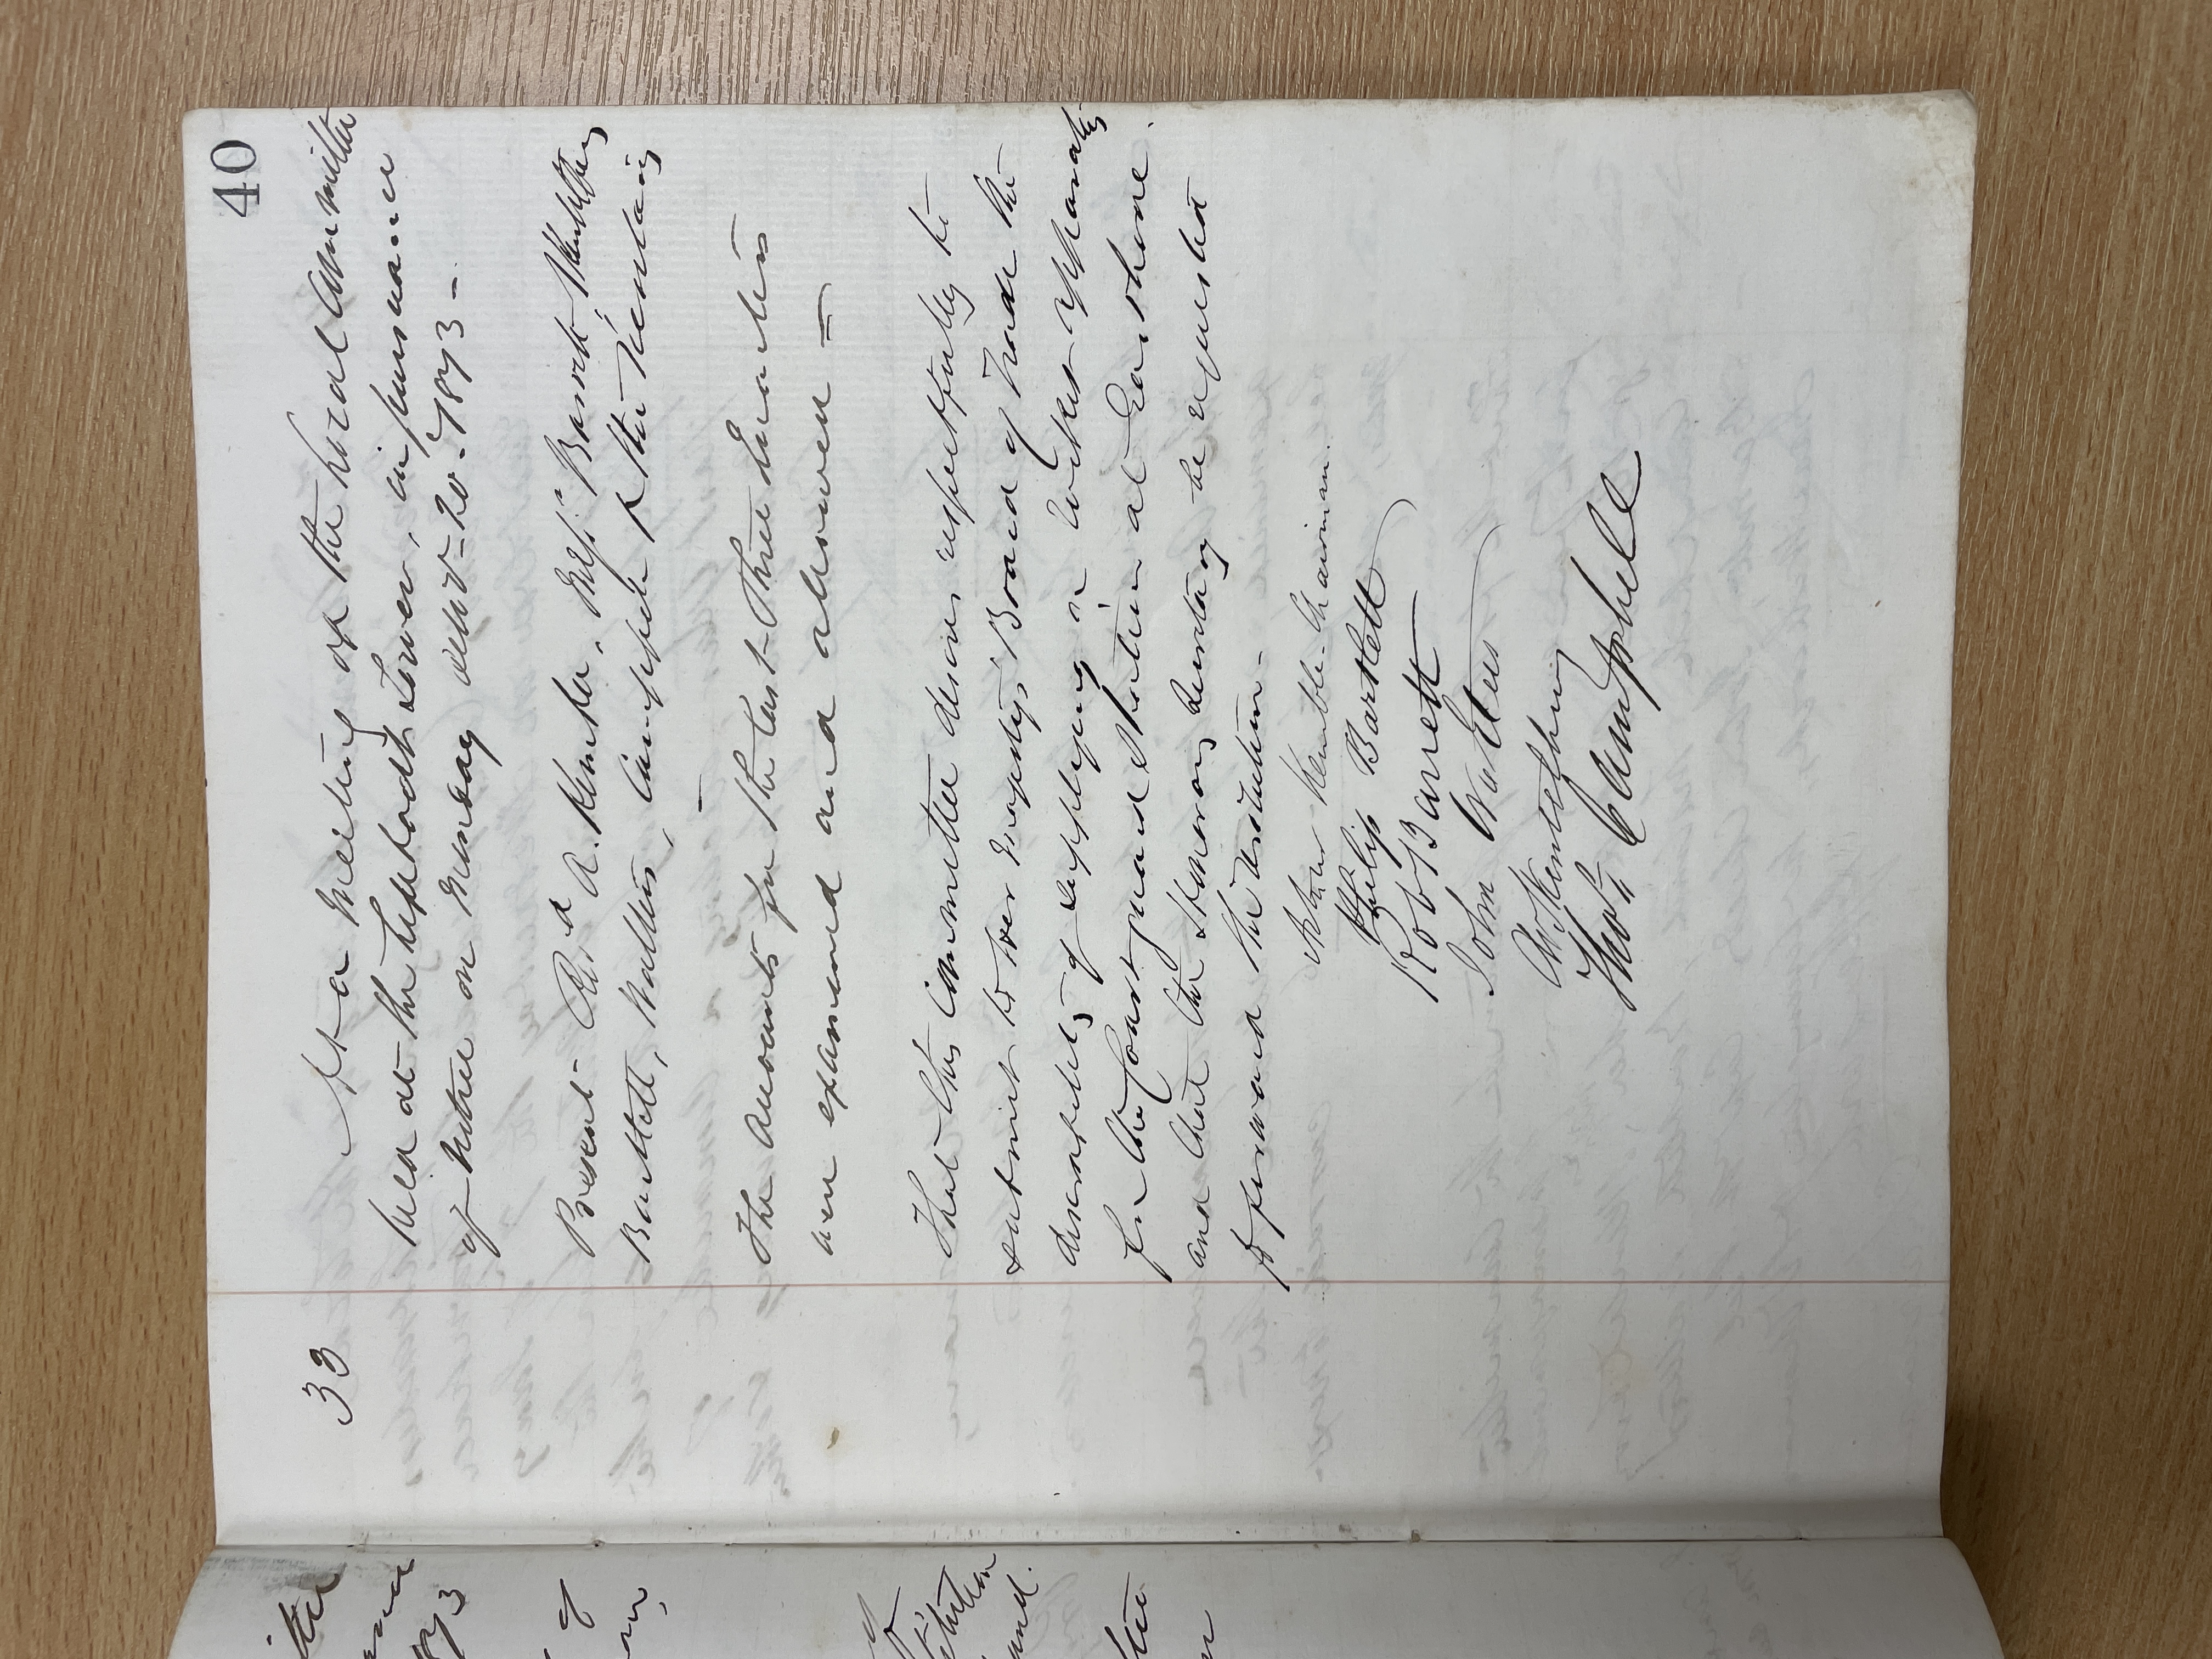 40
33 At a Meeting of the Local Committee
held at the Lifeboat Tower, in pursuance
of notice on Monday 20. 1873 –
Present – Revd A. Kemble, Messrs Barrett,
Bartlett, Walters, Campbell & the Secretary
The Accounts for the last Three Quarters
were examined and allowed =
That this Committee desires respectfully to
submit to Her Majesty's Board of Trade the
desirability of supplying Rocket Apparatus
for the Coast guard Station at
and that the Honorary Secretary be requested
to forward the Resolution –
Kemble – Chairman.
Philip Bartlett
Robt Barrett
John Walters
Thos Campbell
1873
of